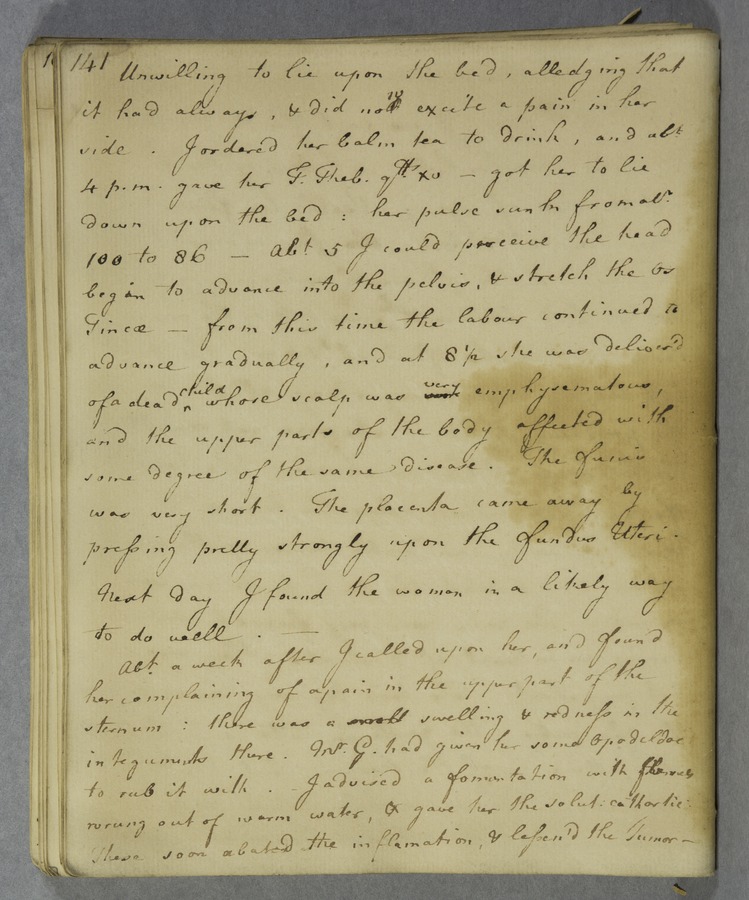 141
Unwilling to lie upon the bed, alledging that
it had always, & did now excite a pain in her
side. I order'd her balm tea to drink, and abt
4 p.m. gave her T. Theb. gtts xv — got her to lie
down upon the bed : her pulse sunk from abt
100 to 86 — Abt 5 I could perceive the head
began to advance into the pelvis, & stretch the os
Tincæ — from this time the labour continued to
advance gradually, and at 8½ she was deliver'd
of a dead child whose scalp was very emphysematous,
and the upper parts of the body affected with
some degree of the same disease. The funis
was very short. The placenta came away by
pressing pretty strongly upon the fundus Uteri.
Next day I found the woman in a likely way
to do well. —
Abt a week after I called upon her, and found
her complaining of a pain in the upper part of the
sternum : there was a small swelling & redness in the
integuments there. Mr. G. had given her some Opodeldoc
to rub it with. I advised a fomentation with
wrung out of warm water, & gave her the solut: cathartic:
These soon abated the inflamation, & lessen'd the Tumor —